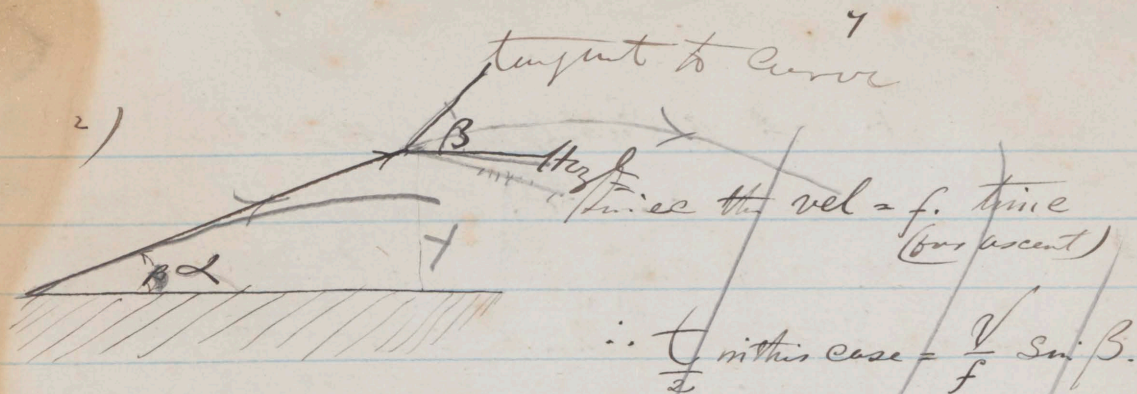 tangent to curve
2)
β
Hozl
Since the vel = f. time
(for ascent)
α
∴ t/2 in this case = V/f Sin β.